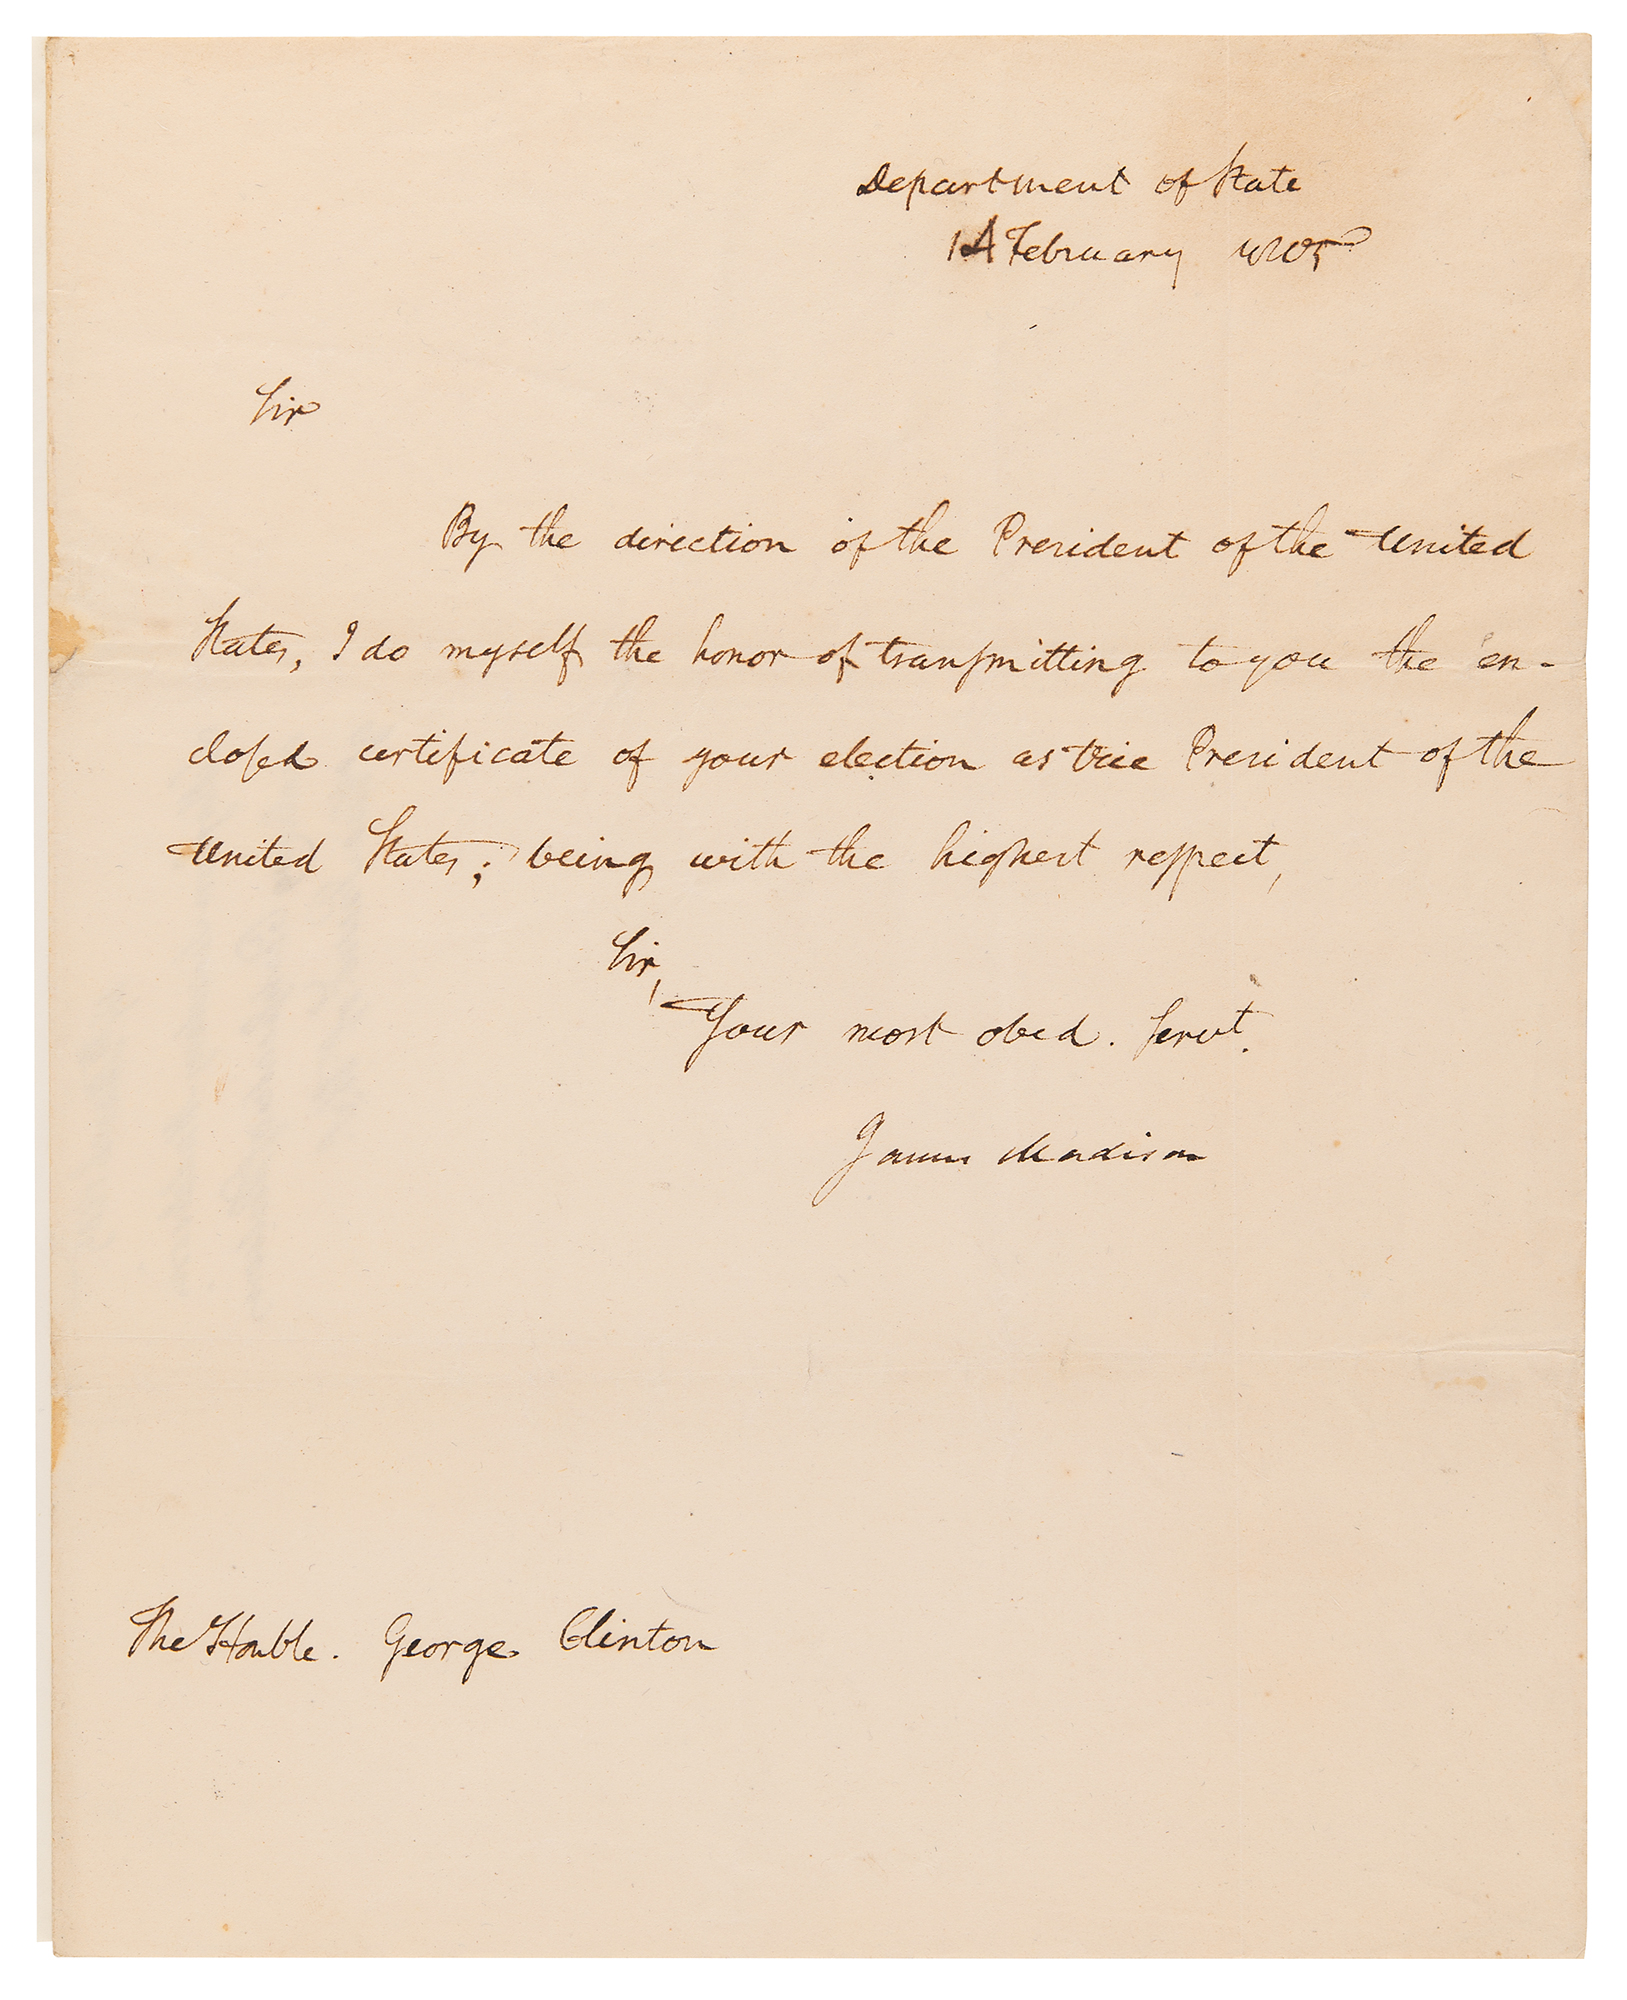 Department of State
14 February 1805
Sir
By the direction of the President of the United
States, I do myself the honor of transmitting to you the en-
closed certificate of your election as Vice President of the
United States; being with the highest respect,
Sir,
Your most obed. servt.
James Madison
The Honble. George Clinton